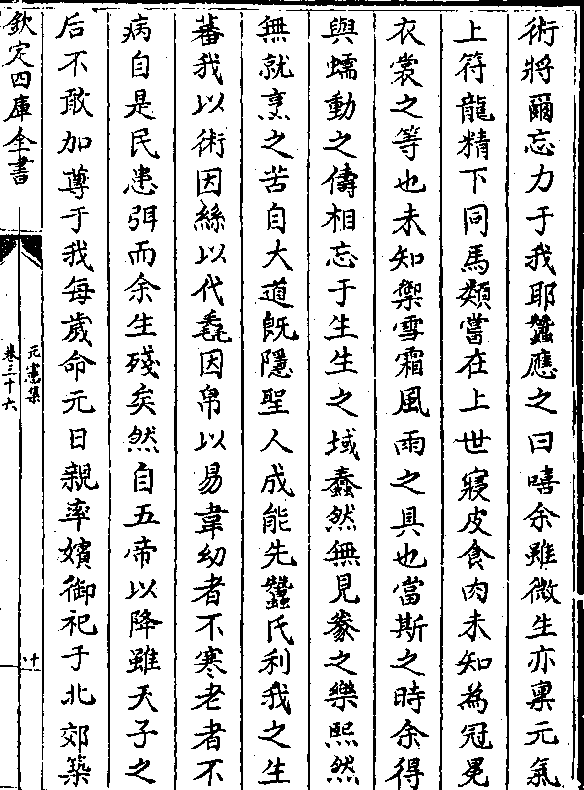 術將爾忘力于我耶蠶應之曰嘻余雖微生亦稟元氣
上符龍精下同馬類嘗在上世寢皮食肉未知為冠冕
衣裳之等也未知禦雪霜風雨之具也當斯之時余得
與蠕動之儔相忘于生生之域蠢然無見豢之樂熙然
無就烹之苦自大道既隱聖人成能先蠶氏利我之生
蕃我以術因絲以代毳因帛以易韋幼者不寒老者不
病自是民患弭而余生殘矣然自五帝以降雖天子之
后不敢加尊于我每歲命元日親率嬪御祀于北郊築
欽定四庫全書
元憲集
卷三十六
十